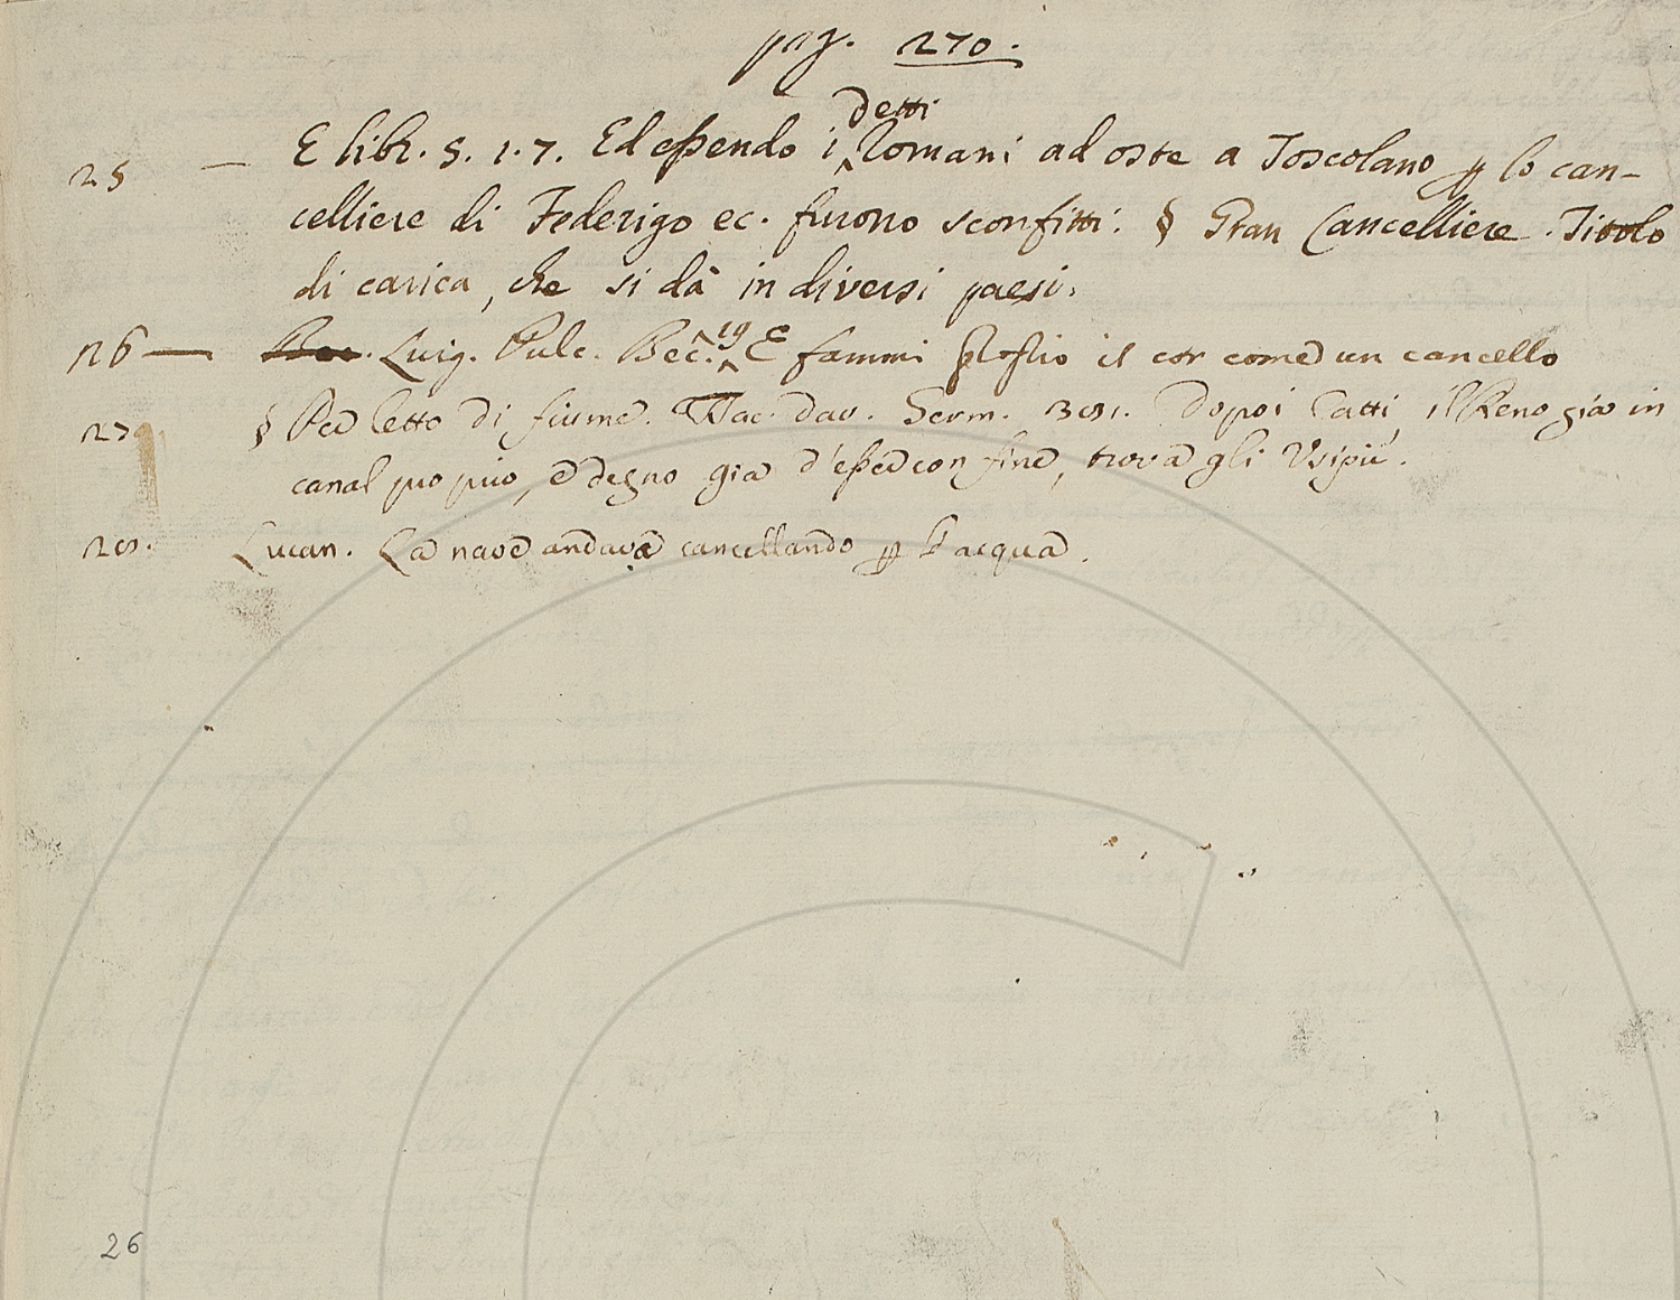 pag. 270.
detti
25 — E libr. 5. 1. 7. Ed essendo i Romani ad oste a Toscolano p lo can-
celliere di Federigo ec. furono sconfitti. § Gran Cancelliere. Titolo
di carica, che si dà in diversi paesi.
26 — Luig. Pulc. Bec. 19 E fammi il cor come un cancello
27 § Per letto di fiume. Tac. Dav. Germ. 381. Dopoi Catti, il Reno già in
canal propio, e degno già d'esser confine, trova gli Usipii.
28. Lucan. La nave andava cancellando p l'acqua.
26